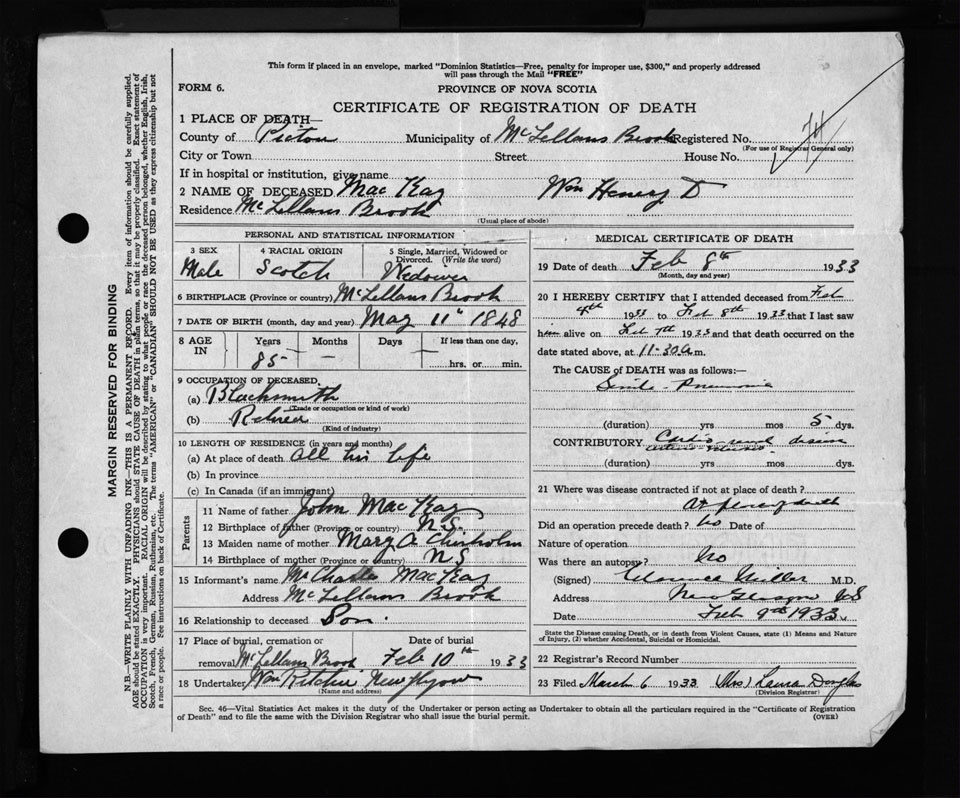 This form if placed in an envelope, marked "Dominion Statistics—Free, penalty for improper use, $300," and properly addressed
will pass through the Mail "FREE"
FORM 6.
PROVINCE OF NOVA SCOTIA
CERTIFICATE OF REGISTRATION OF DEATH
74
1 PLACE OF DEATH—
County of Pictou Municipality of McLellans Brook Registered No.
(For use of Registrar General only)
City or Town Street House No.
If in hospital or institution, give name
2 NAME OF DECEASED Mac Kay Wm Henry D
Residence McLellans Brook
(Usual place of abode)
PERSONAL AND STATISTICAL INFORMATION
3 SEX 4 RACIAL ORIGIN 5 Single, Married, Widowed or
Divorced. (Write the word)
Male Scotch Wedower
6 BIRTHPLACE (Province or country) McLellans Brook
7 DATE OF BIRTH (month, day and year) May 11" 1848
8 AGE IN Years Months Days If less than one day,
85 — hrs. or min.
9 OCCUPATION OF DECEASED.
(a) Blacksmith
(Trade or occupation or kind of work)
(b) Retired
(Kind of industry)
10 LENGTH OF RESIDENCE (in years and months)
(a) At place of death all his life
(b) In province
(c) In Canada (if an immigrant)
Parents
11 Name of father John Mac Kay
12 Birthplace of father (Province or country) N.S.
13 Maiden name of mother Mary A Chisholm
14 Birthplace of mother (Province or country) N S
15 Informant's name Mac Kay
Address McLellans Brook
16 Relationship to deceased Son.
17 Place of burial, cremation or Date of burial
removal McLellans Brook Feb 10th 1933
18 Undertaker Wm Ritchie New
(Name and address)
MEDICAL CERTIFICATE OF DEATH
19 Date of death Feb 8th 1933
(Month, day and year)
20 I HEREBY CERTIFY that I attended deceased from Feb
4th 1933 to Feb 8th 1933 that I last saw
him alive on Feb 7th 1933 and that death occurred on
the date stated above, at 11-30 a.m.
The CAUSE of DEATH was as follows:
Senile - Pneumonia
(duration) yrs mos 5 dys.
CONTRIBUTORY Cardio renal disease
(duration) yrs mos dys.
21 Where was disease contracted if not at place of death?
At place of death
Did an operation precede death? no Date of
Nature of operation
Was there an autopsy? No
(Signed) Clarence Miller M.D.
Address New Glasgow NS
Date Feb 9th 1933
State the Disease causing Death, or in death from Violent Causes, state (1) Means and Nature
of Injury, (2) whether Accidental, Suicidal or Homicidal.
22 Registrar's Record Number
23 Filed March 6 1933 (Mrs) Laura Douglas
(Division Registrar)
Sec. 46—Vital Statistics Act makes it the duty of the Undertaker or person acting as Undertaker to obtain all the particulars required in the "Certificate of Registration
of Death" and to file the same with the Division Registrar who shall issue the burial permit.
(OVER)
MARGIN RESERVED FOR BINDING
N.B.—WRITE PLAINLY WITH UNFADING INK—THIS IS A PERMANENT RECORD. Every item of information should be carefully supplied.
AGE should be stated EXACTLY. PHYSICIANS should STATE CAUSE OF DEATH in plain terms, so that it may be properly classified. Exact statement of
OCCUPATION is very important. RACIAL ORIGIN will be described by stating to what people or race the deceased person belonged, whether English, Irish,
Scotch, French, German, Russian, Ruthenian, etc. The terms "AMERICAN" or "CANADIAN" SHOULD NOT BE USED as they express citizenship but not
a race or people. Fee instructions on back of Certificate.